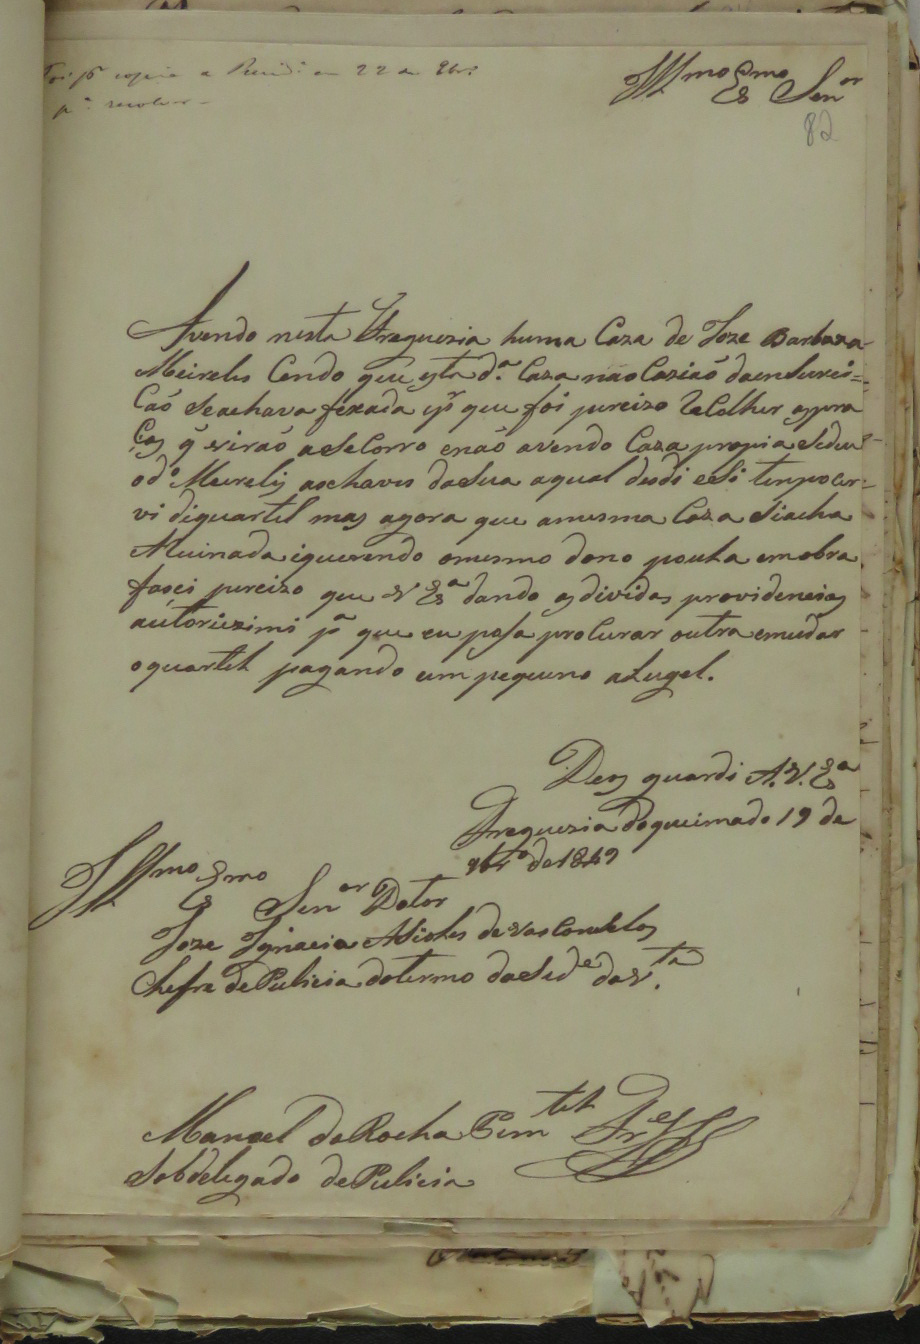 Foi pr copia a Presid.e em 22 de 9br.o
p.a resolver
Illmo Exmo Senor
82
Avendo nesta Freguezia huma Caza de Joze Barboza
Meirelis Cendo que esta d.a Caza na ocaziaõ da ensurei=
Caõ Se achava fexada e pr que foi pureizo Recolher as pra
Cas q̃ viraõ a seCorro e naõ avendo Caza propia Sedeu
o d.o Meirelis as chaves da Sua a qual desdi eSi tenpo cer=
vi di quartel mas agora que a mesma Caza Si acha
Aruinada i querendo o mesmo dono pouta em obra
fasci pureizo que V Exa dando as dividas providencias
autorizimi pa que eu posa proCurar outra e mudar
o quartel pagando um pequeno aLugel.
Deos guardi A. V. Exa
Freguezia do queimado 19 de
9bro de 1849
Illmo Exmo Senor Dotor
Joze Ignacio Acioles de VasConcelos
Chefre de Pulicia do termo da Sede da V.ta
Manoel da Rocha Pimtel Fres
Sobdelegado de Pulicia